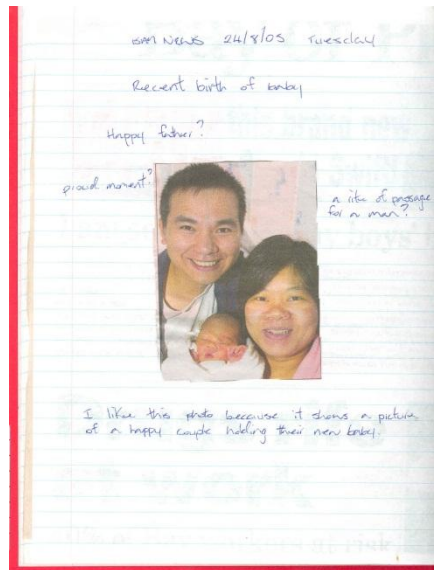 NEWS 24/8/05 Tuesday
Recent birth of baby
Happy father?
proud moment?
a rite of passage
for a man?
I like this photo because it shows a picture
of a happy couple holding their new baby.